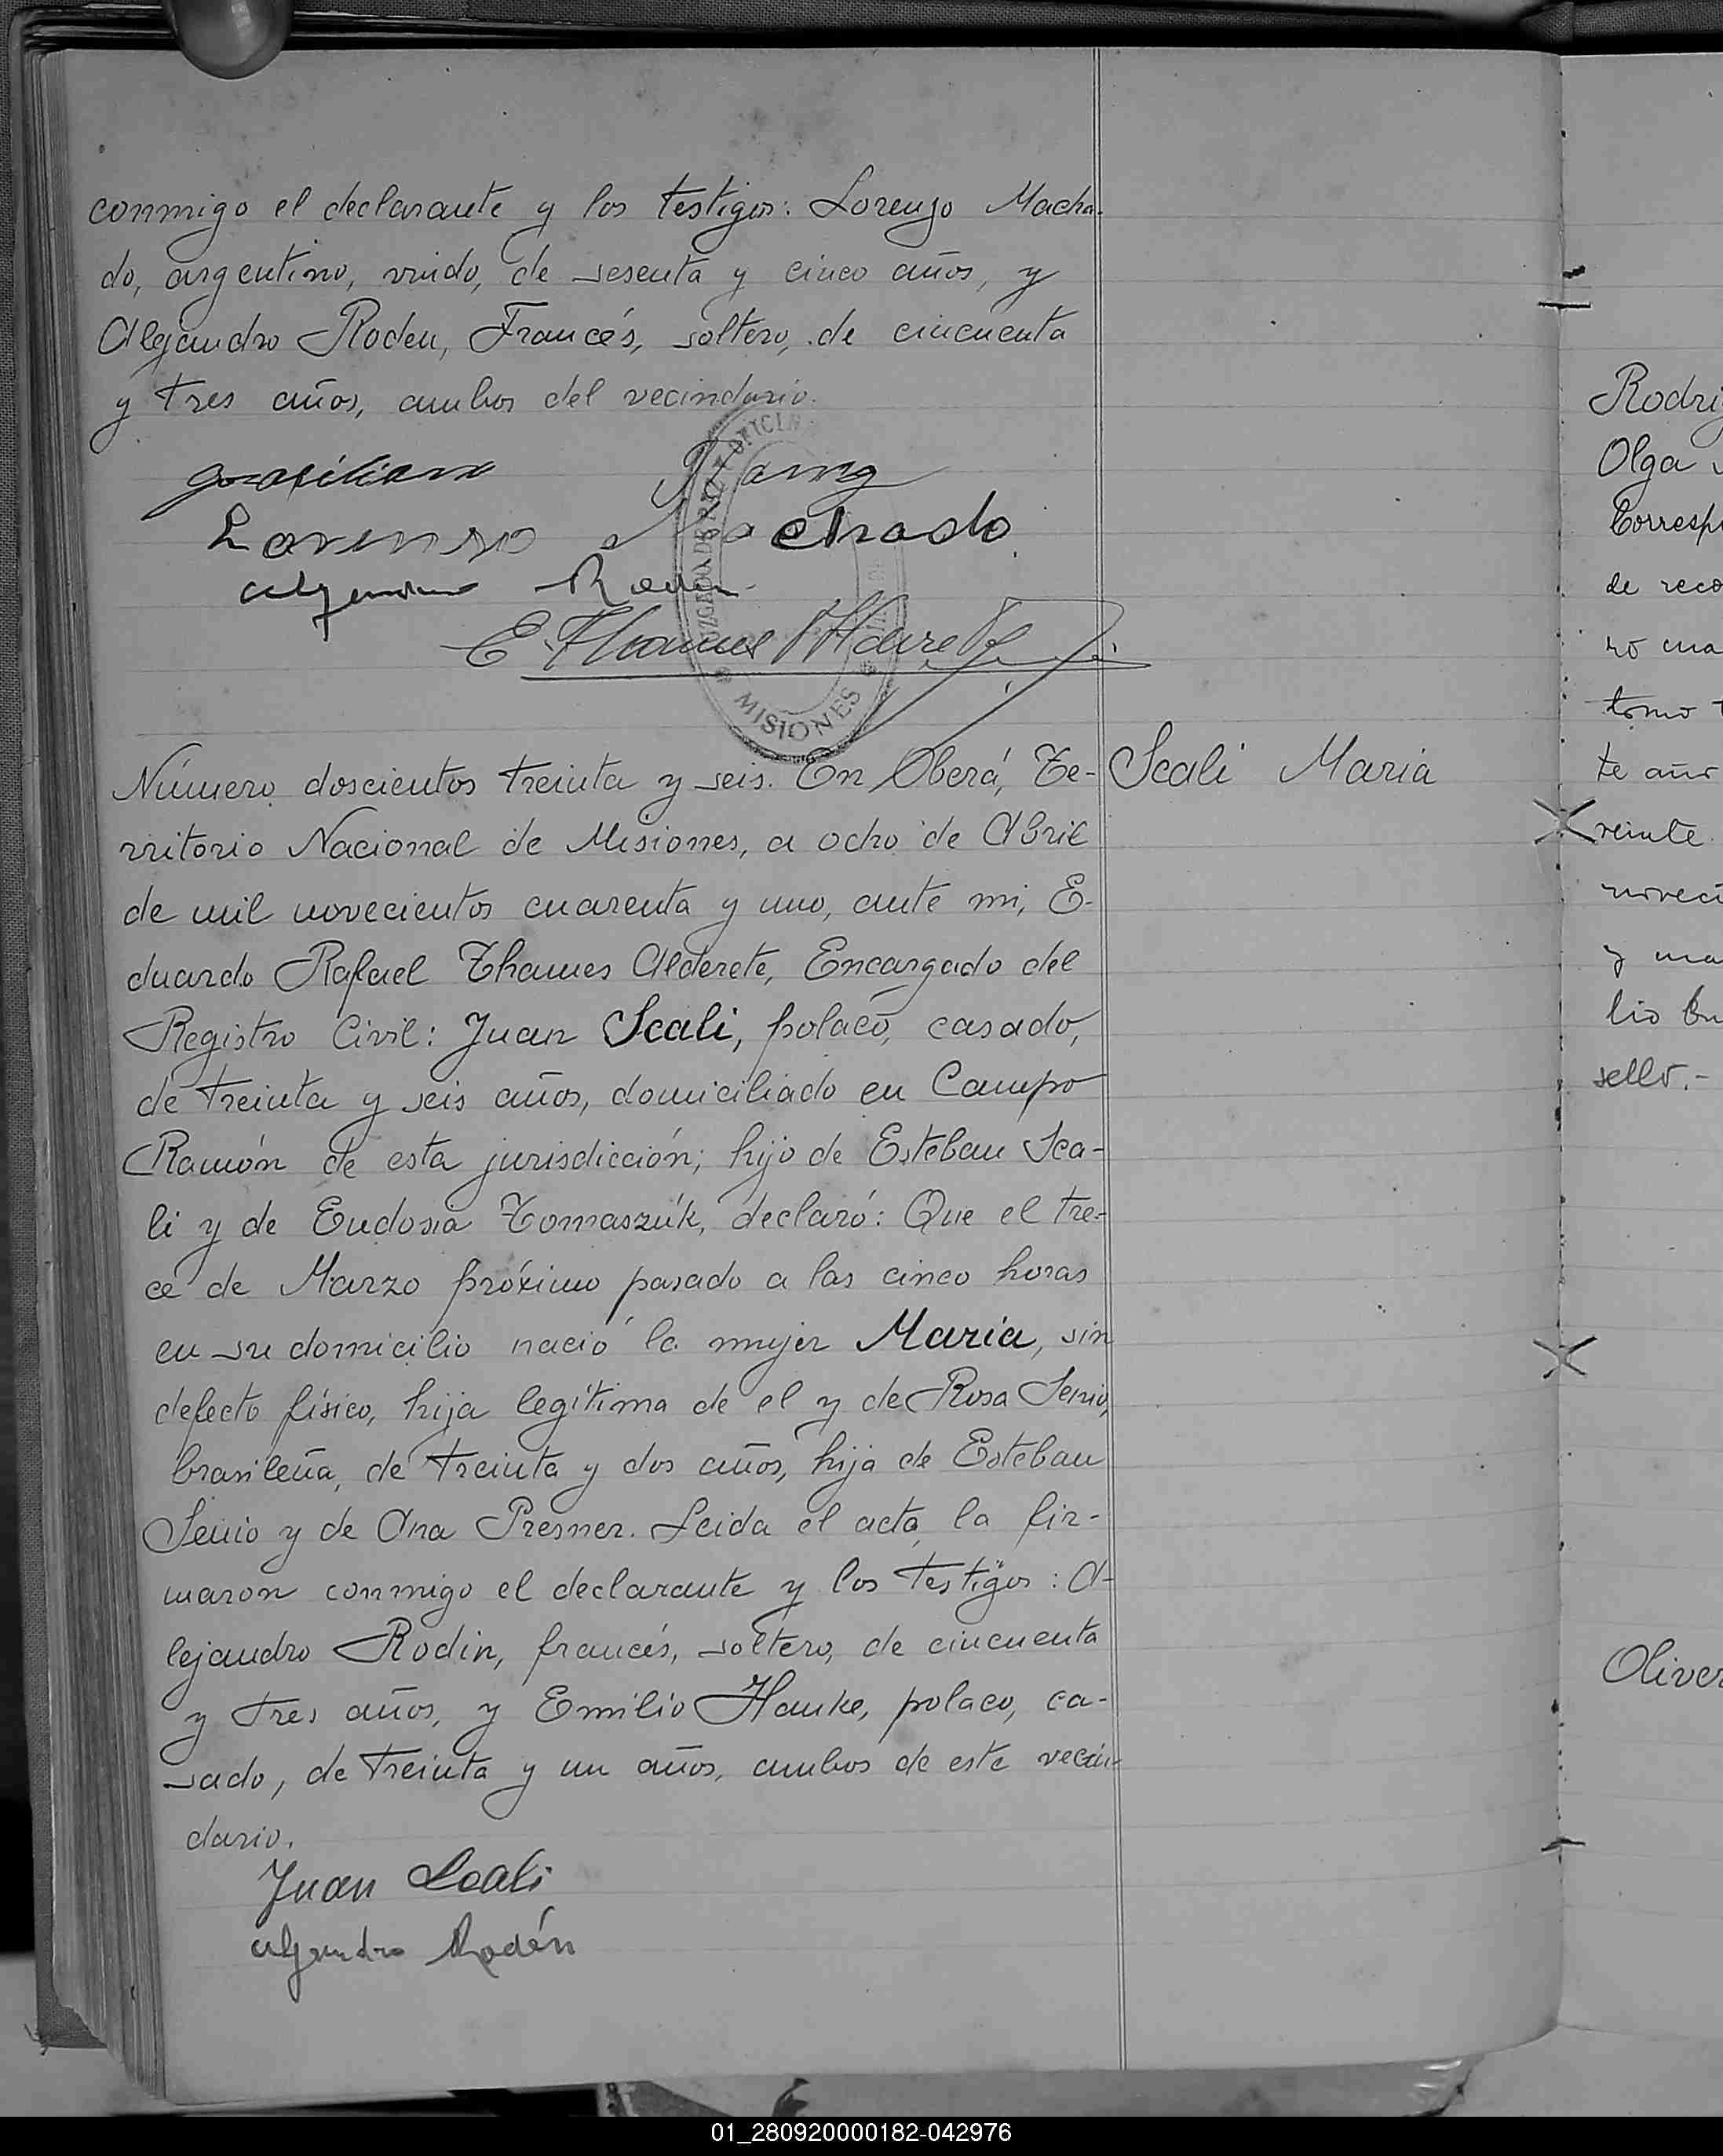 conmigo el declarante y los testigos: Lorenzo Macha-
do, argentino, viudo, de sesenta y cinco años, y
Alejandro Roden, Francés, soltero, de cincuenta
y tres años, ambos del vecindario.
Lorenzo Machado
Alejandro Roden
E. Thames Alderete
MISIONES
Número doscientos treinta y seis. En Oberá, Te-
rritorio Nacional de Misiones, a ocho de Abril
de mil novecientos cuarenta y uno, ante mi, E-
duardo Rafael Thames Alderete, Encargado del
Registro Civil: Juan Scali, polaco, casado,
de treinta y seis años, domiciliado en Campo
Ramón de esta jurisdicción; hijo de Esteban Sca-
li y de Eudosia Tomaszúk, declaró: Que el tre-
ce de Marzo próximo pasado a las cinco horas
en su domicilio nació la mujer Maria, sin
defecto físico, hija legítima de el y de Rosa Senio,
brasileña, de treinta y dos años, hija de Esteban
Senio y de Ana Presner. Leida el acta la fir-
maron conmigo el declarante y los testigos: A-
lejandro Rodin, francés, soltero, de cincuenta
y tres años, y Emilio Hauke, polaco, ca-
sado, de treinta y un años, ambos de este vecin-
dario.
Juan Scali
Alejandro Rodén
Scali Maria
Rodri
Olga
Corresp
de reco
ro cua
tomo t
te año
veinte
noveci
y ma
lio En
sello.-
Oliver
01_280920000182-042976